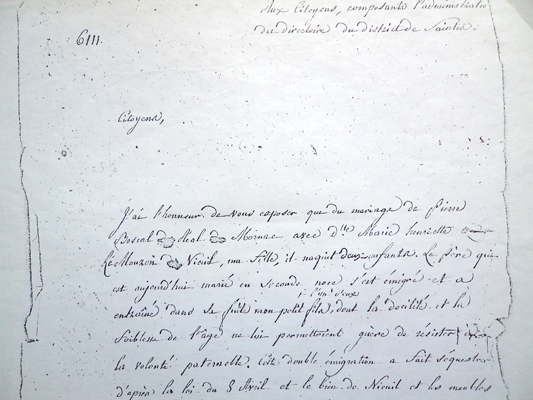 Aux Citoyens, composants l'administratio
du directoire du district de Saintes.
6111.
Citoyens,
J'ai l'honneur de vous exposer que du mariage de Pierre
Boscal Réal de Mornac avec d.lle Marie henriette
Le Mouzon de Nieuil, ma fille, il naquit deux enfants. Le père qui
est aujourd'hui marié en seconde noce s'est émigré et a
l'un d'eux
entrainé dans sa fuite mon petit fils, dont la docilité et la
foiblesse de l'age ne lui permettoient guère de résister
la volonté paternelle. Cette double émigration a fait séquestrer
d'après la loi du 8 Avril et le bien de Nieuil et les meubles